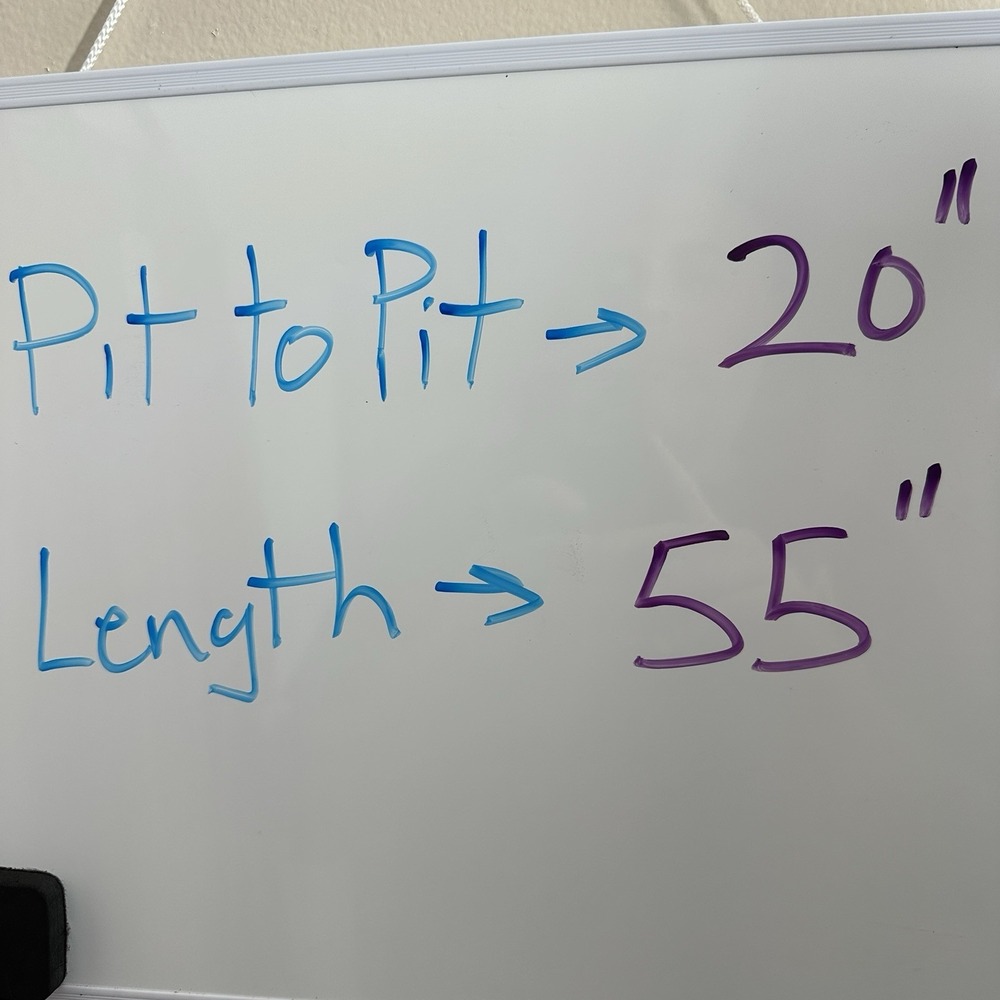 Pit to Pit → 20"
Length → 55"